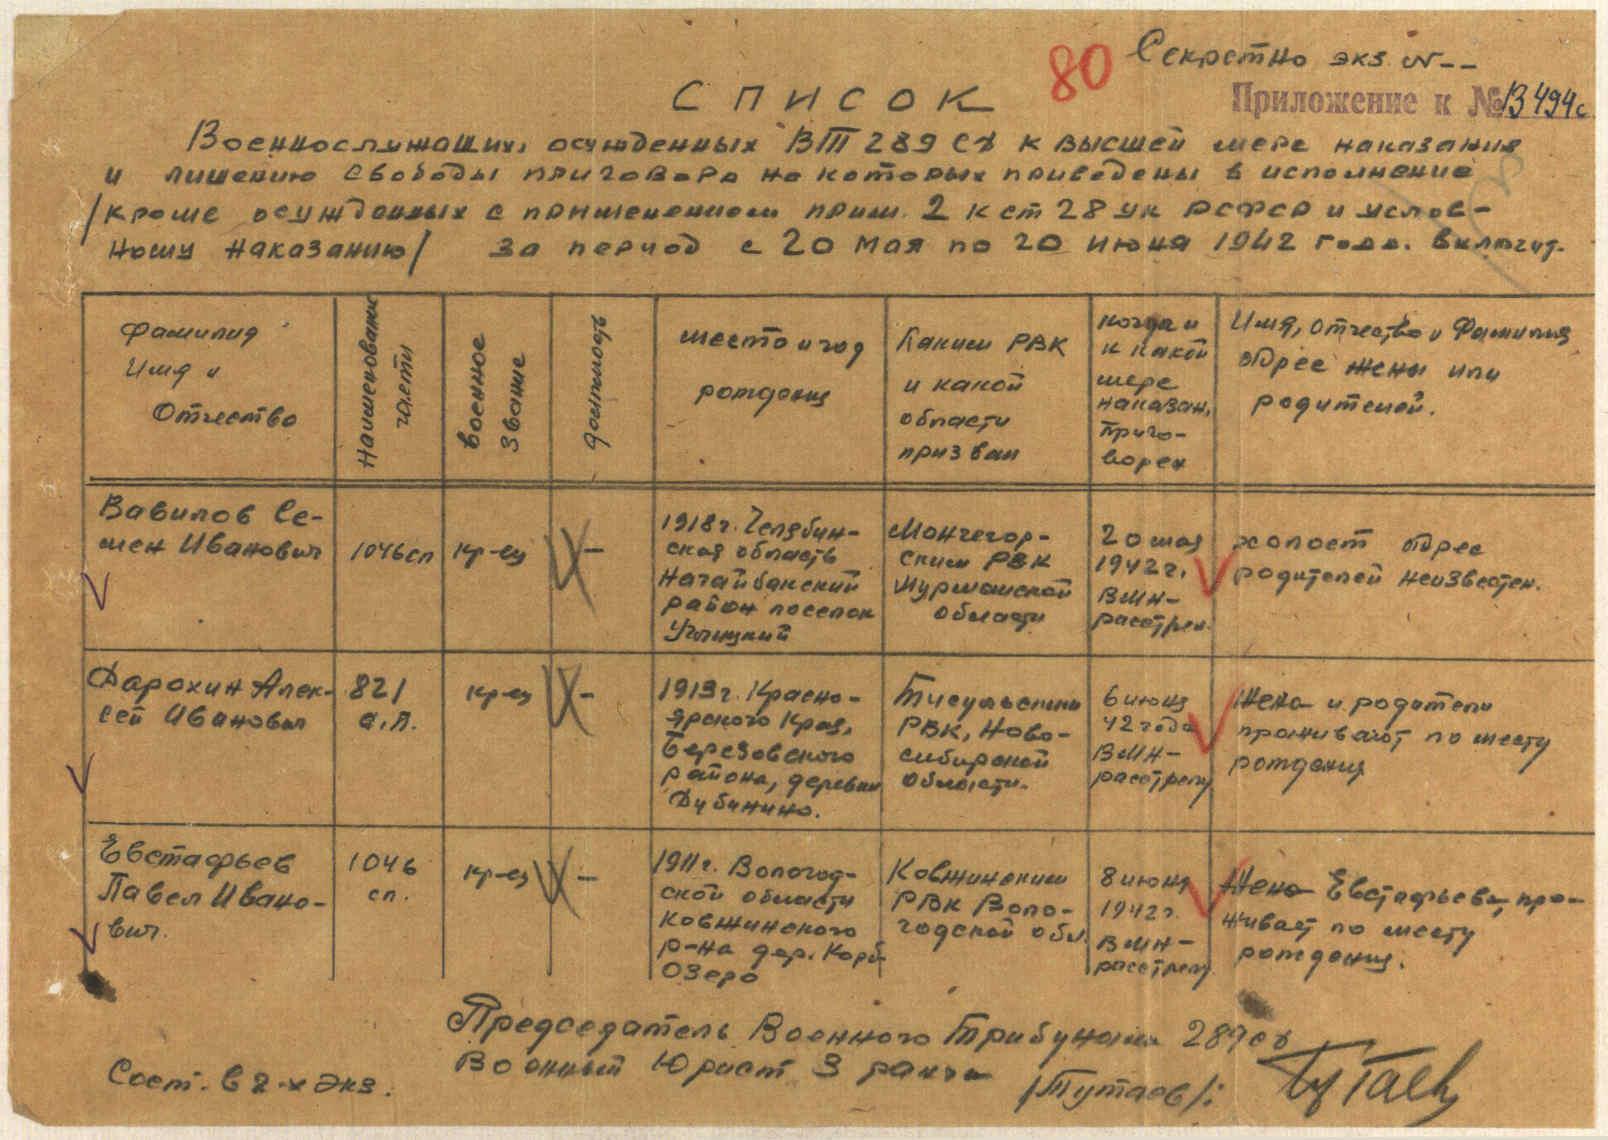 Секретно экз. №--
80
Приложение к № 13494с
СПИСОК
Военнослужащих, осужденных ВТ 289 сд к высшей мере наказания
и лишению свободы приговора на которых приведены в исполнение
/кроме осужденных с применением прим. 2 к ст 28 УК РСФСР и услов-
ному наказанию/ за период с 20 мая по 20 июня 1942 года. включит.
Фамилия
Имя и
Отчество
Наименование
части
Военное
звание
должность
место и год
рождения
Каким РВК
и какой
области
призван
когда и
к какой
мере
наказан.
приго-
ворен
Имя, отчество и Фамилия
адрес жены или
родителей.
Вавилов Се-
мен Иванович
1046сп
кр-ец
-
1918г. Челябин-
ская область
Нагайбакский
район поселок
Мончегор-
ским РВК
Мурманской
области
20 мая
1942г.
ВМН-
расстрел.
холост адрес
родителей неизвестен.
Дарохин Алек-
сей Иванович
821
а.п.
кр-ец
-
1913г. Красно-
ярского Края,
Березовского
района, деревни
Дубинино.
Тисульским
РВК, Ново-
сибирской
области.
6 июня
42 года
ВМН-
расстрелу
Жена и родители
проживают по месту
рождения
Евстафьев
Павел Ивано-
вич.
1046
сп.
кр-ец
-
1911г. Вологод-
ской области
Ковжинского
р-на дер. Карб-
озеро
Ковжинским
РВК Воло-
годской обл.
8 июня
1942г.
ВМН-
расстрелу
Жена Евстафьева, про-
живает по месту
рождения.
Председатель Военного Трибунала 289 сд
Военный Юрист 3 ранга
/Тутаев/:
Тутаев
Сост. в 2-х экз.